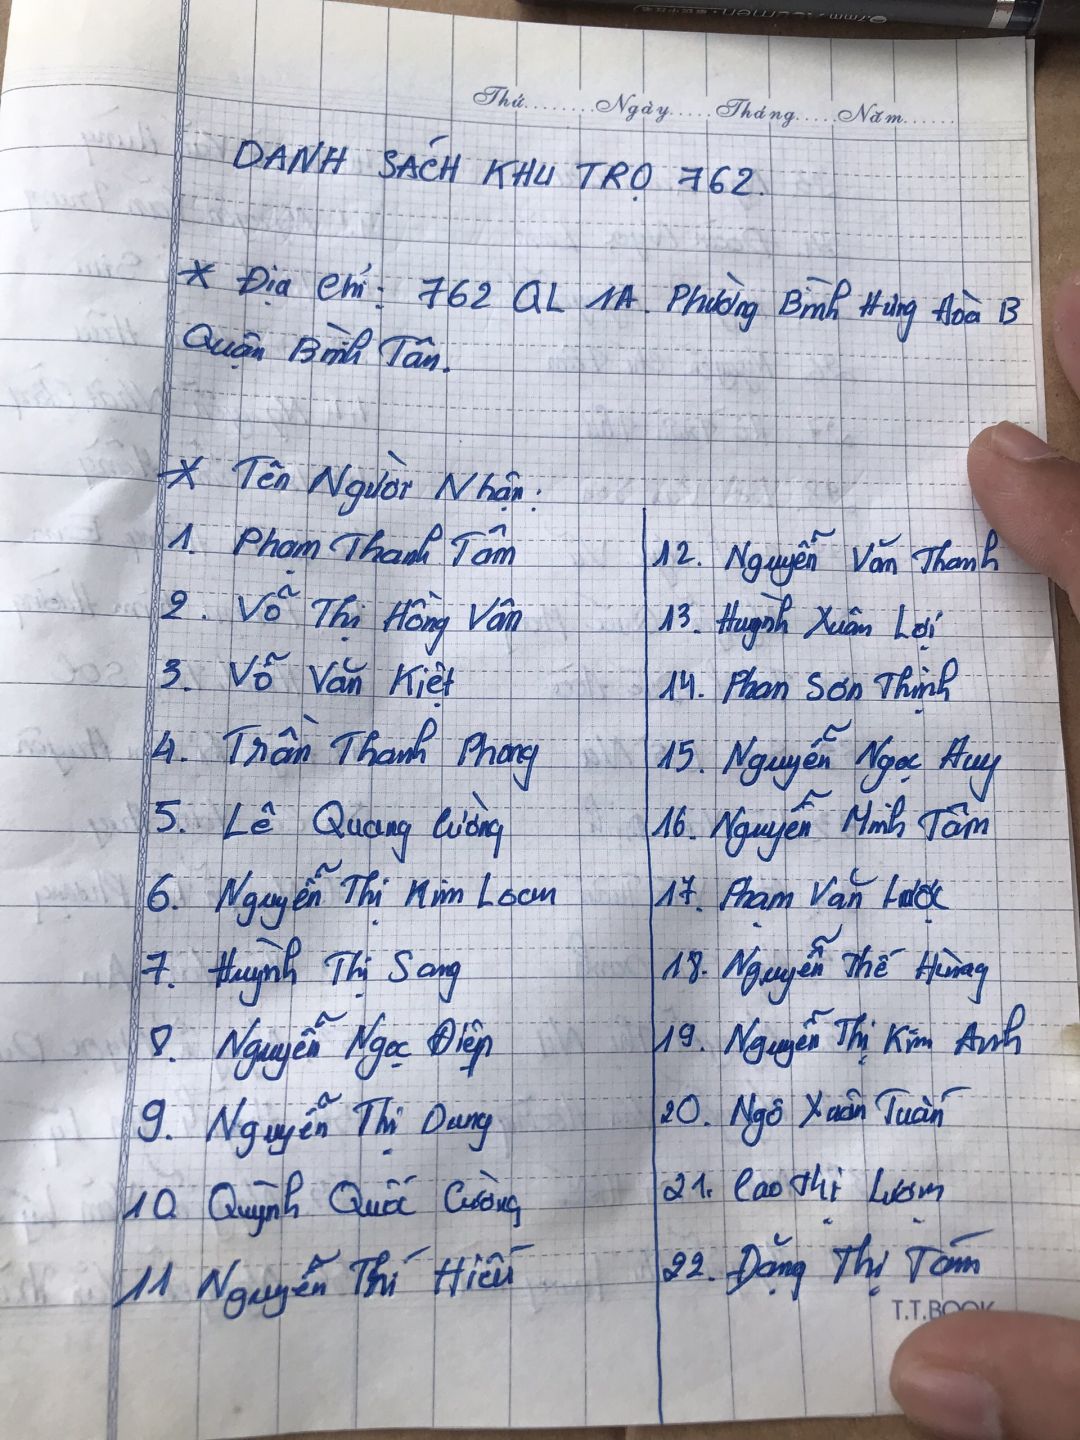 Thứ........Ngày.....Tháng.....Năm......
DANH SÁCH KHU TRỌ 762.
* Địa chỉ: 762 QL 1A. Phường Bình Hưng Hoà B
Quận Bình Tân.
* Tên Người Nhận:
1. Phạm Thanh Tâm
2. Võ Thị Hồng Vân
3. Võ Văn Kiệt
4. Trần Thanh Phong
5. Lê Quang Cường
6. Nguyễn Thị Kim Loan
7. Huỳnh Thị Sang
8. Nguyễn Ngọc Điệp
9. Nguyễn Thị Dung
10 Quỳnh Quốc Cường
11 Nguyễn Thí Hiếu
12. Nguyễn Văn Thanh
13. Huỳnh Xuân Lợi
14. Phan Sơn Thịnh
15. Nguyễn Ngọc Huy
16. Nguyễn Minh Tâm
17. Phạm Văn Lược
18. Nguyễn Thế Hùng
19. Nguyễn Thị Kim Anh
20. Ngô Xuân Tuấn
21. Cao Thị Lượm
22. Đặng Thị Tám
T.T.BOOK